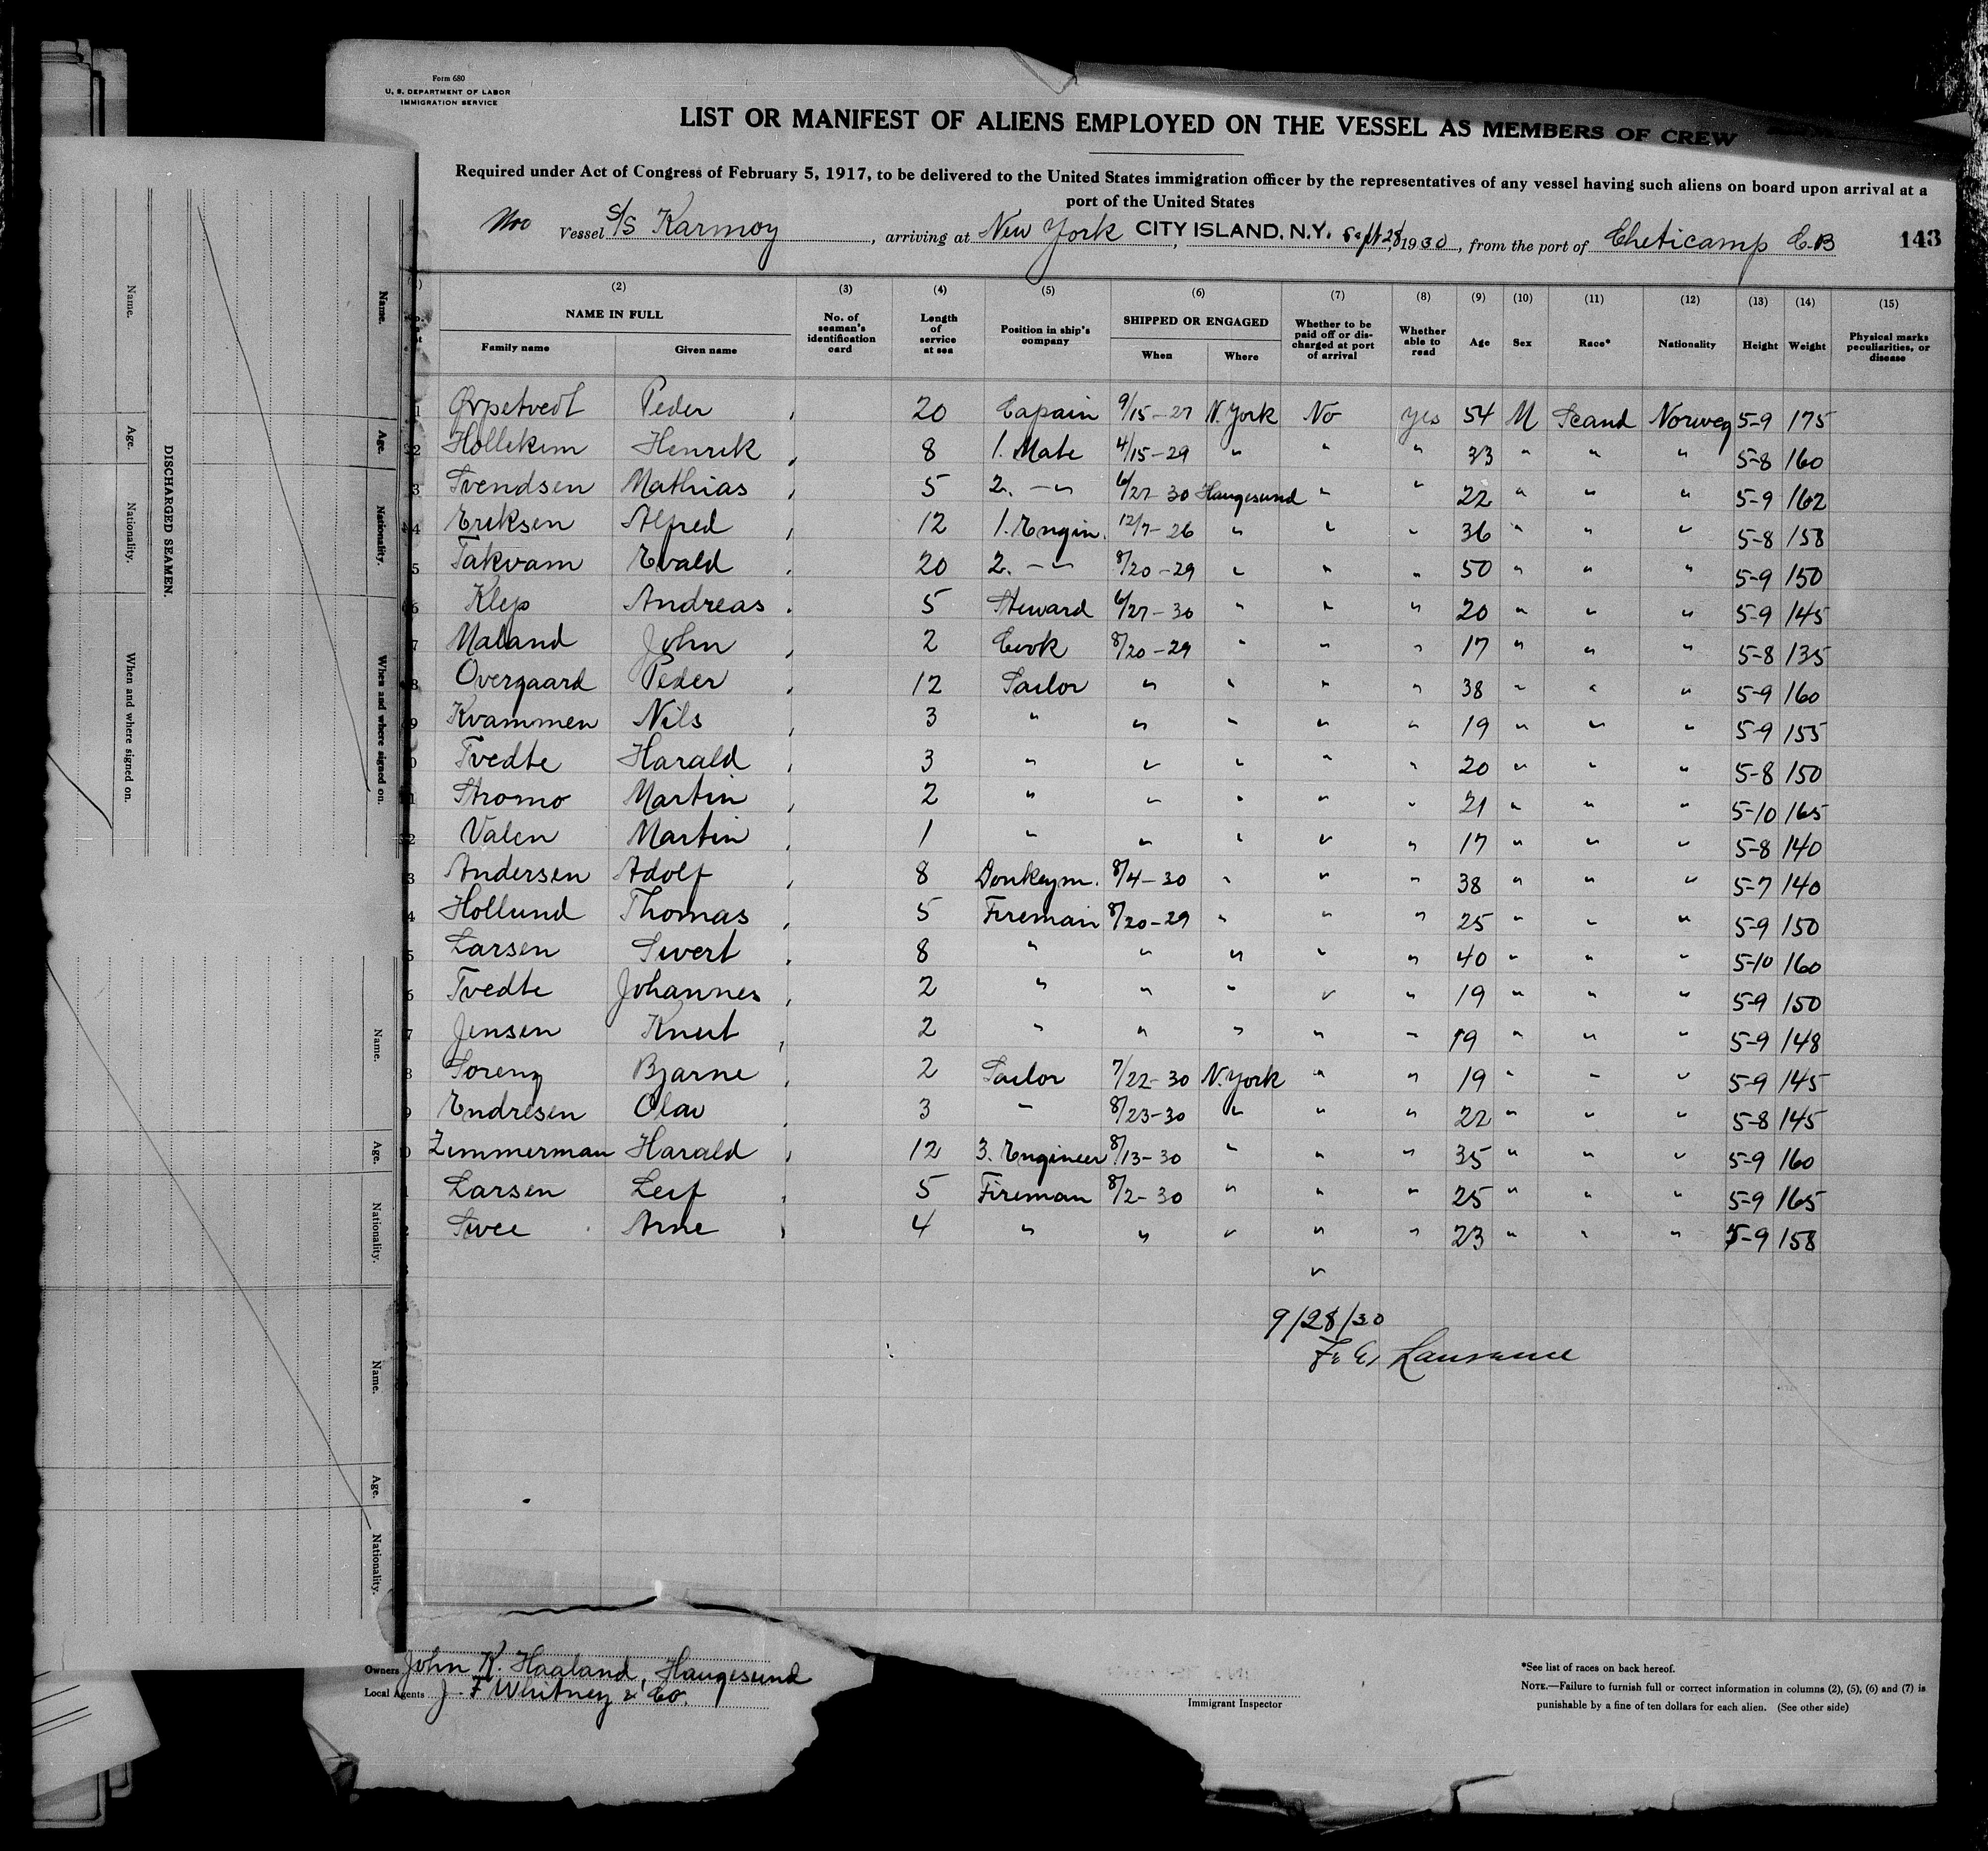 Form 680
U. S. DEPARTMENT OF LABOR
IMMIGRATION SERVICE
LIST OR MANIFEST OF ALIENS EMPLOYED ON THE VESSEL AS MEMBERS OF CREW
Required under Act of Congress of February 5, 1917, to be delivered to the United States immigration officer by the representatives of any vessel having such aliens on board upon arrival at a
port of the United States
Vessel S/S Karmoy, arriving at New York CITY ISLAND, N.Y. Sept 28, 1930, from the port of Cheticamp C.B 143
(2) (3) (4) (5) (6) (7) (8) (9) (10) (11) (12) (13) (14) (15)
NAME IN FULL No. of seaman's identification card Length of service at sea Position in ship's company SHIPPED OR ENGAGED Whether to be paid off or discharged at port of arrival Whether able to read Age Sex Race* Nationality Height Weight Physical marks peculiarities, or disease
Family name Given name When Where
1 Ørpetvedt Peder 20 Capain 9/15-27 N.York No yes 54 M Scand Norweg 5-9 175
2 Hollekim Henrik 8 1. Mate 4/15-29 " " " 33 " " " 5-8 160
3 Svendsen Mathias 5 2. -"- 6/27-30 Haugesund " " 22 " " " 5-9 162
4 Eriksen Alfred 12 1. Engin. 12/7-26 " " " 36 " " " 5-8 158
5 Takvam Evald 20 2. -"- 8/20-29 " " " 50 " " " 5-9 150
6 Klep Andreas 5 Steward 6/27-30 " " " 20 " " " 5-9 145
7 Maland John 2 Cook 8/20-29 " " " 17 " " " 5-8 135
8 Overgaard Peder 12 Sailor " " " " 38 " " " 5-9 160
9 Kvammen Nils 3 " " " " " 19 " " " 5-9 155
0 Tvedte Harald 3 " " " " " 20 " " " 5-8 150
1 Stromo Martin 2 " " " " " 21 " " " 5-10 165
2 Valen Martin 1 " " " " " 17 " " " 5-8 140
3 Andersen Adolf 8 Donkeym. 8/4-30 " " " 38 " " " 5-7 140
4 Hollund Thomas 5 Fireman 8/20-29 " " " 25 " " " 5-9 150
5 Larsen Sivert 8 " " " " " 40 " " " 5-10 160
6 Tvedte Johannes 2 " " " " " 19 " " " 5-9 150
7 Jensen Knut 2 " " " " " 19 " " " 5-9 148
8 Bjarne 2 Sailor 7/22-30 N.York " " 19 " " " 5-9 145
9 Endresen Olav 3 " 8/23-30 " " " 22 " " " 5-8 145
0 Zimmerman Harald 12 3. Engineer 8/13-30 " " " 35 " " " 5-9 160
Larsen Leif 5 Fireman 8/2-30 " " " 25 " " " 5-9 165
Arne 4 " " " " " 23 " " " 5-9 158
9/28/30
F. E. Laurence
Owners John K. Haaland, Haugesund
Local Agents J. F Whitney & Co.
Immigrant Inspector
*See list of races on back hereof.
NOTE.—Failure to furnish full or correct information in columns (2), (5), (6) and (7) is
punishable by a fine of ten dollars for each alien. (See other side)
DISCHARGED SEAMEN.
Name.
Age.
Nationality.
When and where signed on.
Name.
Age.
Nationality.
When and where signed on.
Name.
Age.
Nationality.
Name.
Age.
Nationality.